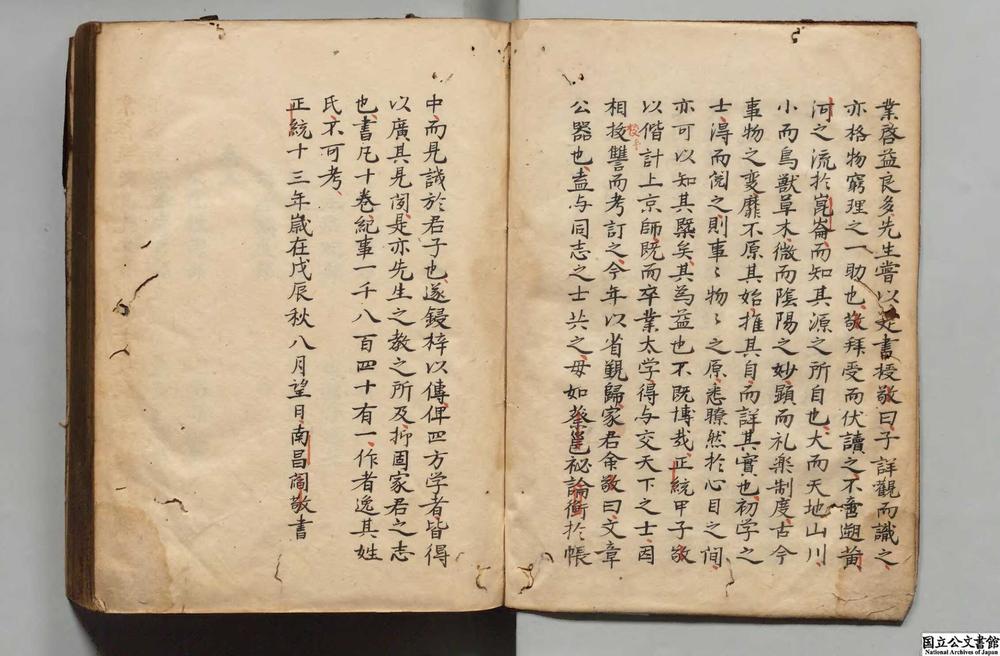 業啓益良多先生嘗以是書授敬曰子詳觀而識之
亦格物窮理之一助也敬拜受而伏讀之不啻遡黄
河之流於崑崙而知其源之所自也大而天地山川
小而鳥獣草木微而隂陽之妙顕而礼楽制度古今
事物之変靡不原其始推其自而詳其實也初学之
士得而閲之則事〻物〻之原悉瞭然於心目之間
亦可以知其槩矣其為益也不既博哉正統甲子敬
以偕計上京師既而卒業太学得与交天下之士因
相挍讐而考訂之今年以省覲歸家君命敬曰文章
公器也盍与同志之士共之毋如蔡邕祕論衡於帳
中而見誚於君子也遂鋟梓以傳俾四方学者皆得
以廣其見聞是亦先生之教之所及抑固家君之志
也書凡十卷紀事一千八百四十有一作者逸其姓
氏不可考
正統十三年歳在戊辰秋八月望日南昌閻敬書
国立公文書館
National Archives of Japan